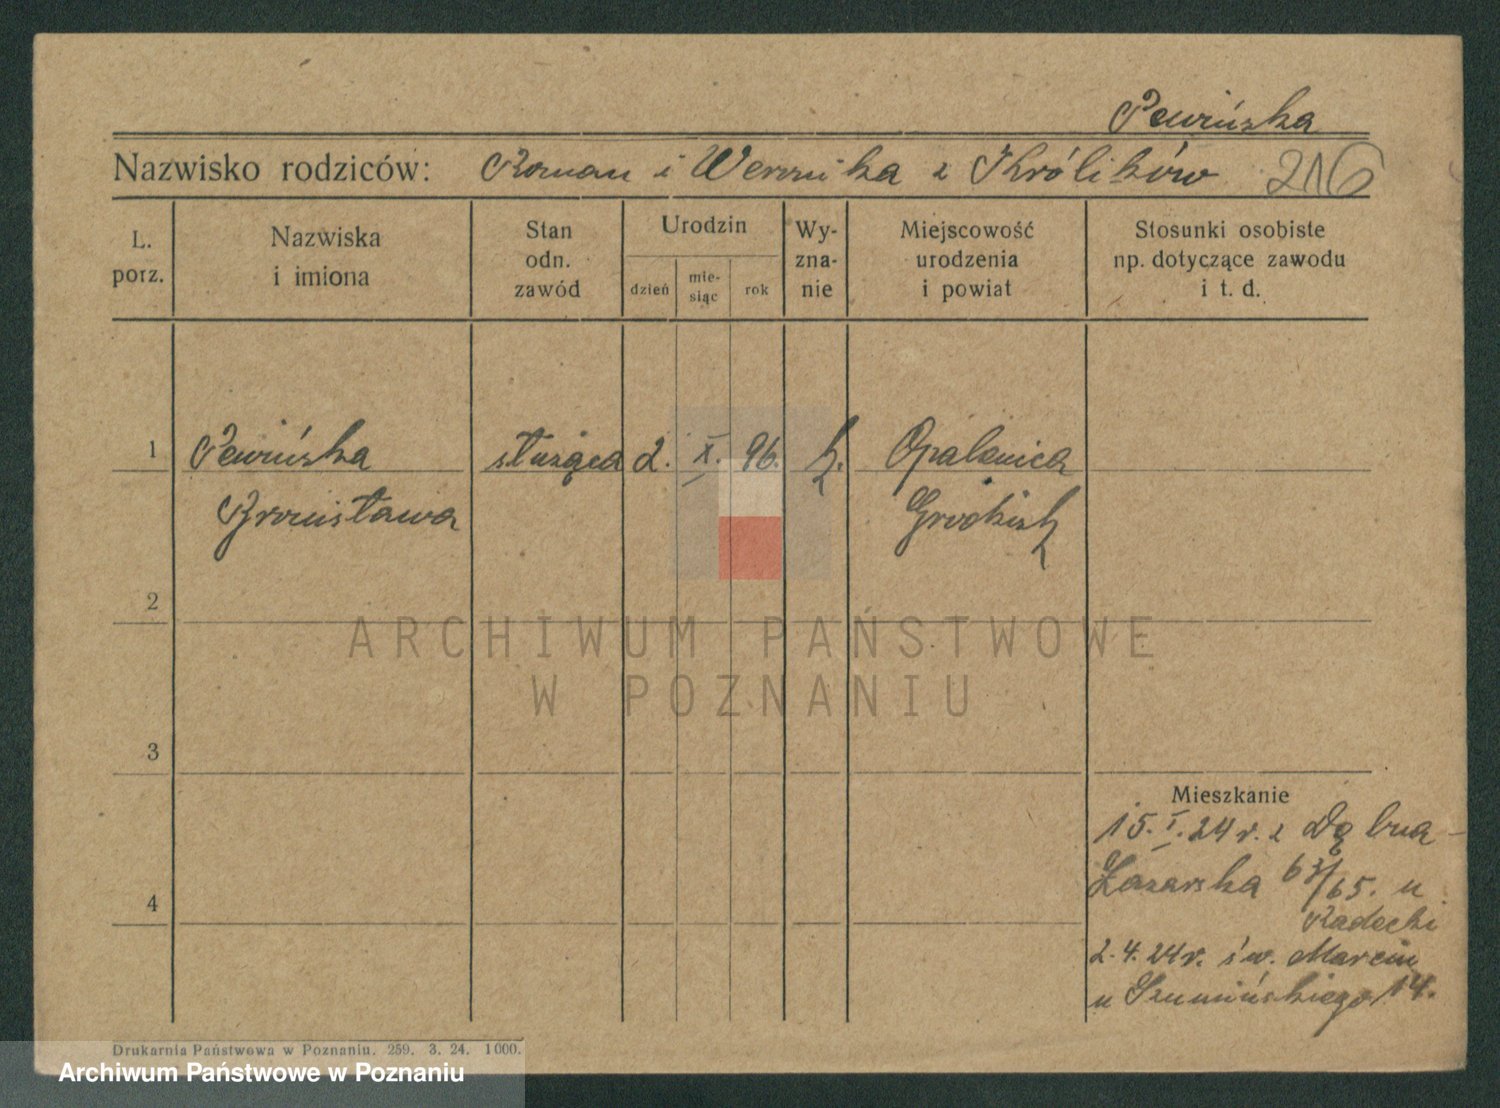 Pewińska
Nazwisko rodziców: Roman i Weronika z Królików 216
L. porz.
Nazwiska i imiona
Stan odn. zawód
Urodzin
dzień
mie- siąc
rok
Wy- zna- nie
Miejscowość urodzenia i powiat
Stosunki osobiste np. dotyczące zawodu i t. d.
1 Pewińska służąca 2. X. 96. k. Opalenica
Bronisława Grodzisk
2
ARCHIWUM PAŃSTWOWE
W POZNANIU
3
Mieszkanie
15. I. 24 r. z
Łazarska 63/65. u
4
Radecki
2. 4. 24 r. św. Marcin
u Szumińskiego 14.
Drukarnia Państwowa w Poznaniu. 259. 3. 24. 1000.
Archiwum Państwowe w Poznaniu